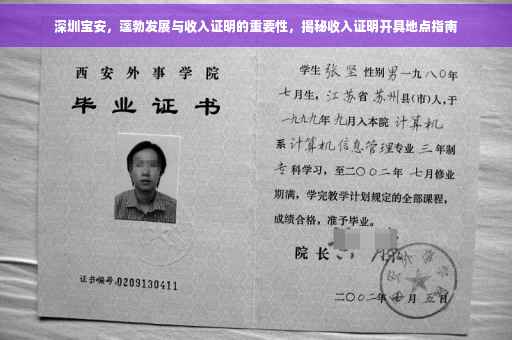 深圳宝安，蓬勃发展与收入证明的重要性，揭秘收入证明开具地点指南
西安外事学院
毕业证书
证书编号:0209130411
学生 张坚 性别 男 一九八〇年
七月生，江苏省 苏州县(市)人,于
一九九九年 九月入本院 计算机
系 计算机信息管理专业 三 年制
专 科学习，至二〇〇二年 七月修业
期满，学完教学计划规定的全部课程，
成绩合格，准予毕业。
院长
二〇〇二年 月 五日